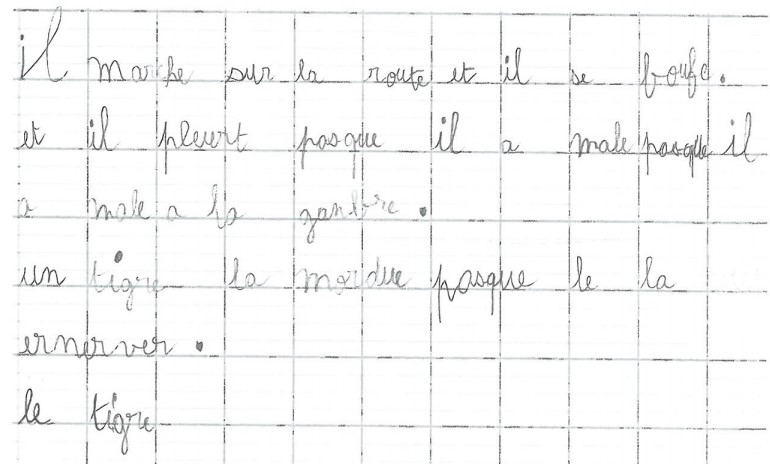 il marche sur la route et il se boufe.
et il pleurt pasque il a male pasque il
a male a la zanbre.
un tigre la mordue pasque le la
ernerver.
le tigre